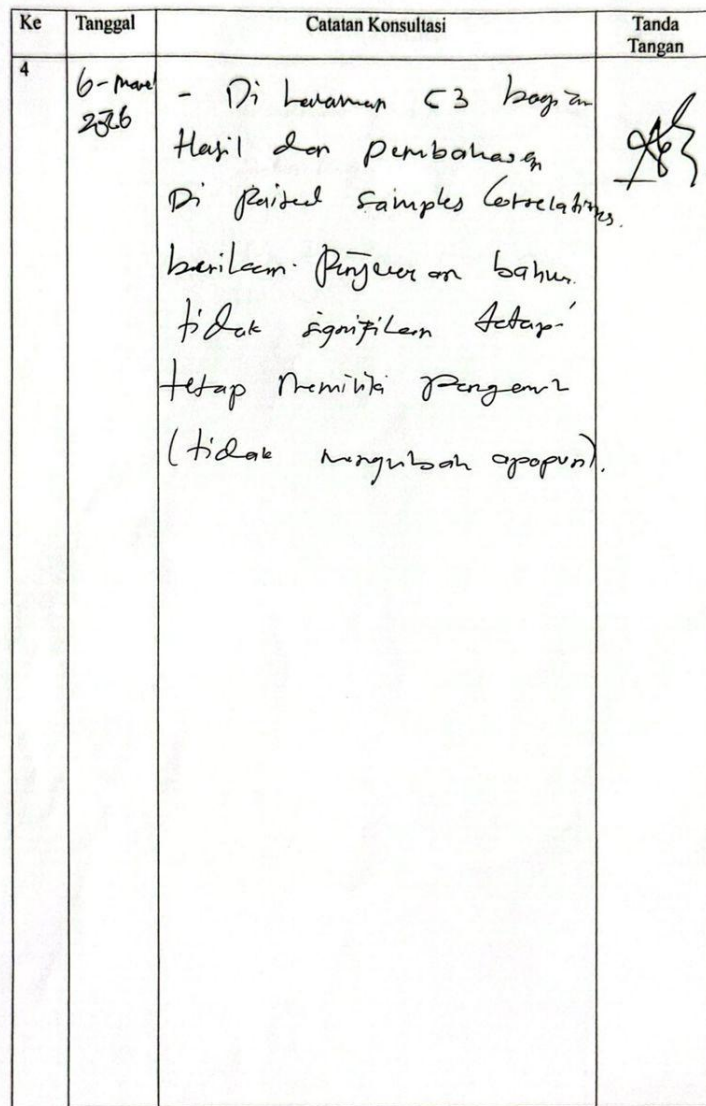 Ke Tanggal Catatan Konsultasi Tanda Tangan
4
6-Maret
2026
- Di halaman 53 bagian
Hasil dan pembahasan
Di Paired Samples Correlations.
berikan Penjelasan bahwa
tidak signifikan tetapi
tetap memiliki pengaruh
(tidak mengubah apapun).